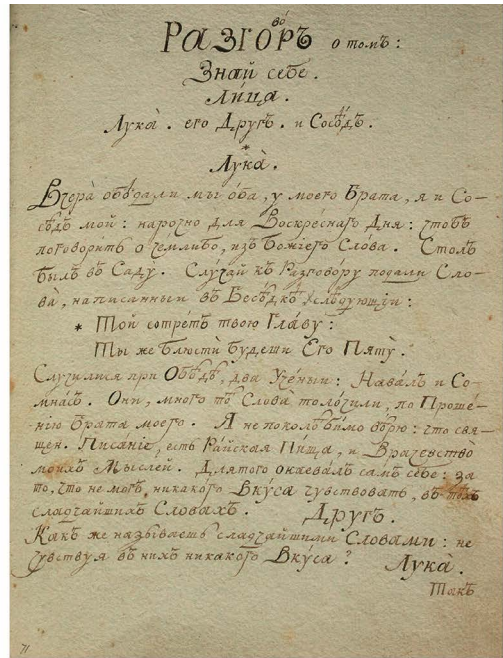 РАЗГОРЪ о томъ:
во
Знай себе.
Лица.
Лука̀. его Другъ. и Сосѣдъ.
*
Лука̀.
Вчера̀ обѣдали мы о́ба, у моего Брата, я и Со-
сѣдъ мой: нарочно для Воскреснаго Дня: чтобъ
поговорить о чемлибо, изъ Божіего Слова. Столъ
Былъ въ Саду. Слу́чай къ Разгово́ру подали Сло-
ва̀, написанныи въ Бесѣдкѣ слѣдующіи:
* Той сотретъ твою Главу̀:
Ты же Блюстѝ Будеши Его Пяту̀.
Случилися при Обѣдѣ, два Уче́ныи: Нава́лъ и Со-
мна́съ. Они, много тѣ Слова толо́чили, по Проше́-
нію Брата моего. Я непоколѣ́бимо вѣрю: что свя-
щен. Писа́ніе, есть Ра́йская Пи́ща, и Врачевство̀
моихъ Мыслей. Длятого окаевалъ самъ себе: за
то, что не могъ, никако́го Вку́са чувствовать, въ тѣхъ
сладчайшихъ Словахъ. Другъ.
Какъ же называешь сладчайшими Словами: не
чувствуя въ нихъ никакого Вку́са? Лука̀.
Такъ
71